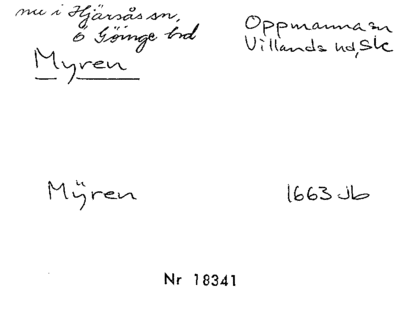 nu i Hjärsås sn,
Ö Göinge hd
Oppmanna sn
Villands hd, Sk
Myren
Mÿren 1663 Jb
Nr 18341